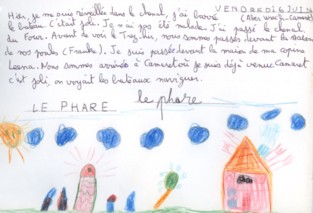 VENDREDI 6 JUIN
Hier, je me suis réveillé dans le chenal, j'ai trouvé (Aber Wrac'h - Camaret)
le bateau. C'était joli. Je n'ai pas été malade. J'ai passé le chenal
du Four. Avant de voir le Trez Hir, nous sommes passés devant la maison
de nos poules (Franke). Je suis passé devant la maison de ma copine
Leena. Nous sommes arrivés à Camaret où je suis déjà venue. Camaret
c'est joli, on voyait les bateaux naviguer.
LE PHARE le phare